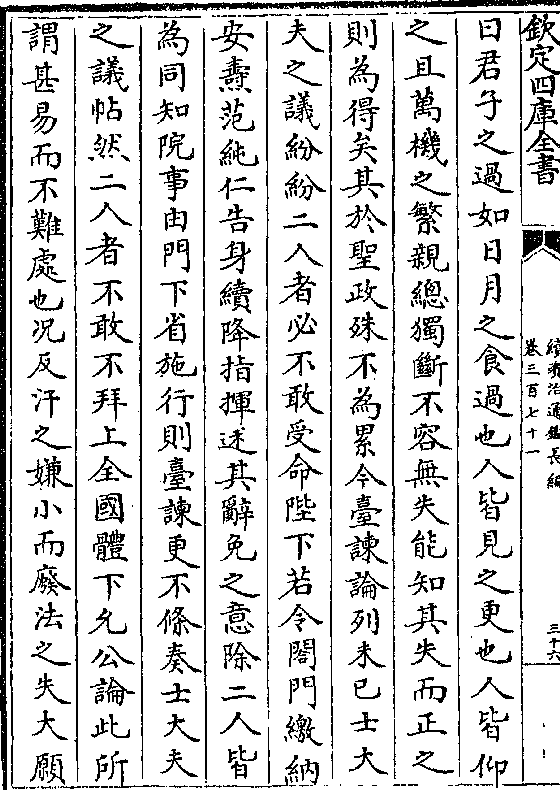 欽定四庫全書
續資治通鑑長編
卷三百七十一
三十六
曰君子之過如日月之食過也人皆見之更也人皆仰
之且萬機之繁親總獨斷不容無失能知其失而正之
則為得矣其於聖政殊不為累今臺諫論列未已士大
夫之議紛紛二人者必不敢受命陛下若令閤門繳納
安燾范純仁告身續降指揮述其辭免之意除二人皆
為同知院事由門下省施行則臺諫更不條奏士大夫
之議帖然二人者不敢不拜上全國體下允公論此所
謂甚易而不難處也况反汗之嫌小而廢法之失大願